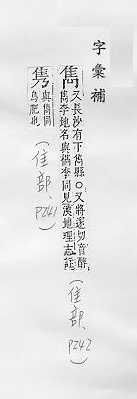 字彙補
雋 又長沙有下雋縣○又將遂切音醉
雋李地名與檇李同見漢地理志註
(隹部, P242)
隽 與雋同
鳥肥也
(隹部, P241)